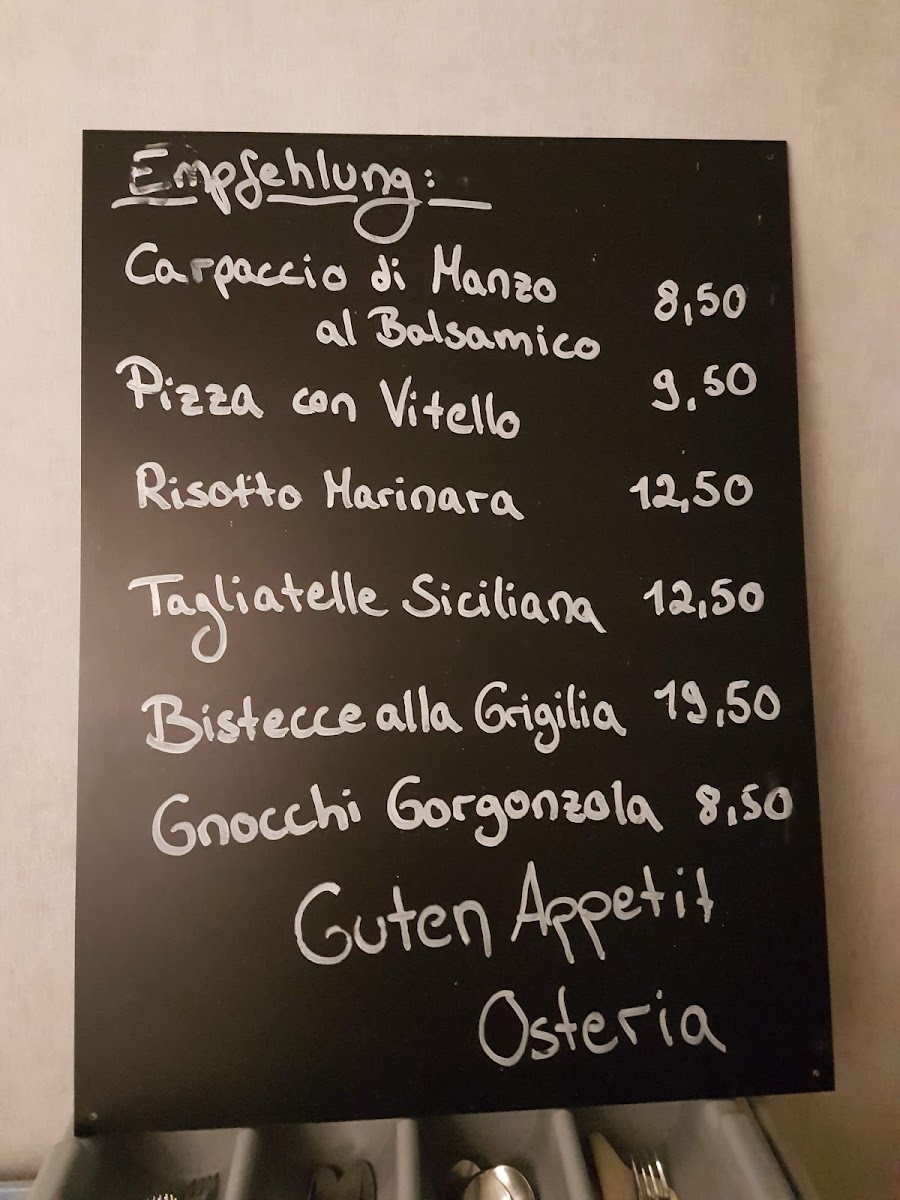 Empfehlung:
Carpaccio di Manzo
al Balsamico 8,50
Pizza con Vitello 9,50
Risotto Marinara 12,50
Tagliatelle Siciliana 12,50
Bistecce alla Grigilia 19,50
Gnocchi Gorgonzola 8,50
Guten Appetit
Osteria